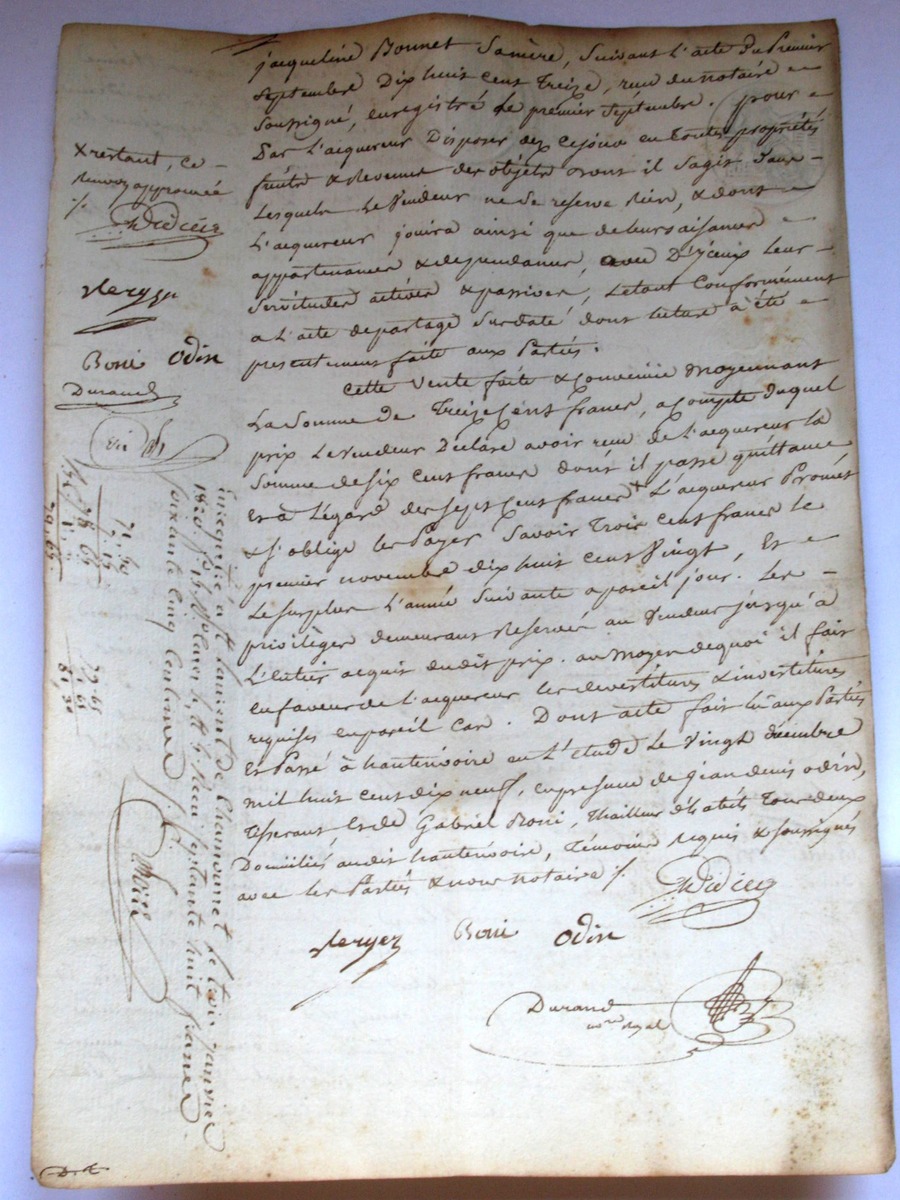 jacqueline Bonnet Sa mère, Suivant l'acte du Premier
Septembre Dix huit cent Treize, recu du notaire
Soussigné, enregistré le premier Septembre. pour
Par L'acquereur Disposer dex Cejour en toutes propriétés
fruits & Revenus des objets dont il s'agit dans
Lesquels Le Vendeur ne Se reserve Rien, & dont
L'acquereur jouira ainsi que de leurs aisances
appartenances & dependances, avec D'yceux leurs
Servitudes actives & passives, Letout Conformément
a L'acte departage Surdaté, dont lecture à été
presentement faite aux Parties.
Cette Vente faite & Convenue Moyennant
La Somme de Treize Cent francs, acompte duquel
prix Levendeur Declare avoir recu de L'acquereur la
Somme de Six Cent francs dont il passe quittance
Et à L'égard des Sept Cent francs x L'acquereur Promet
& S'oblige les Payer Savoir Trois Cent francs le
premier novembre dix huit Cent Vingt, Et
Le Surplus L'année Suivante apareil jour. Les
privilèges demeurant Reservés au Vendeur jusqu'à
L'entier acquit dudit prix. au Moyen dequoi il fait
en faveur de L'acquereur les devestitures & investitures
requises enpareil Cas. Dont acte fait lu aux Parties
Et Passé à hauterivoire en L'étude Le Vingt décembre
Mil huit Cent dix neuf, en presence de jean denis odin,
Tisserant, Et de Gabriel Boni, Thailleur d'habits Tous deux
Domiciliés audit hauterivoire, Témoins requis & soussignés
avec les Parties & nous notaire ./.
Boni Odin
Durand
no.re royal
x restant, Ce
Renvoy approuvé
./.
Boni Odin
Durand
Enregistré à St Laurent de Chamousset le trois janvier
1820
Soixante Cinq Centimes
71. 50
7. 15
78. 65
1.
79. 65
79. 65
1. 65
81. 30